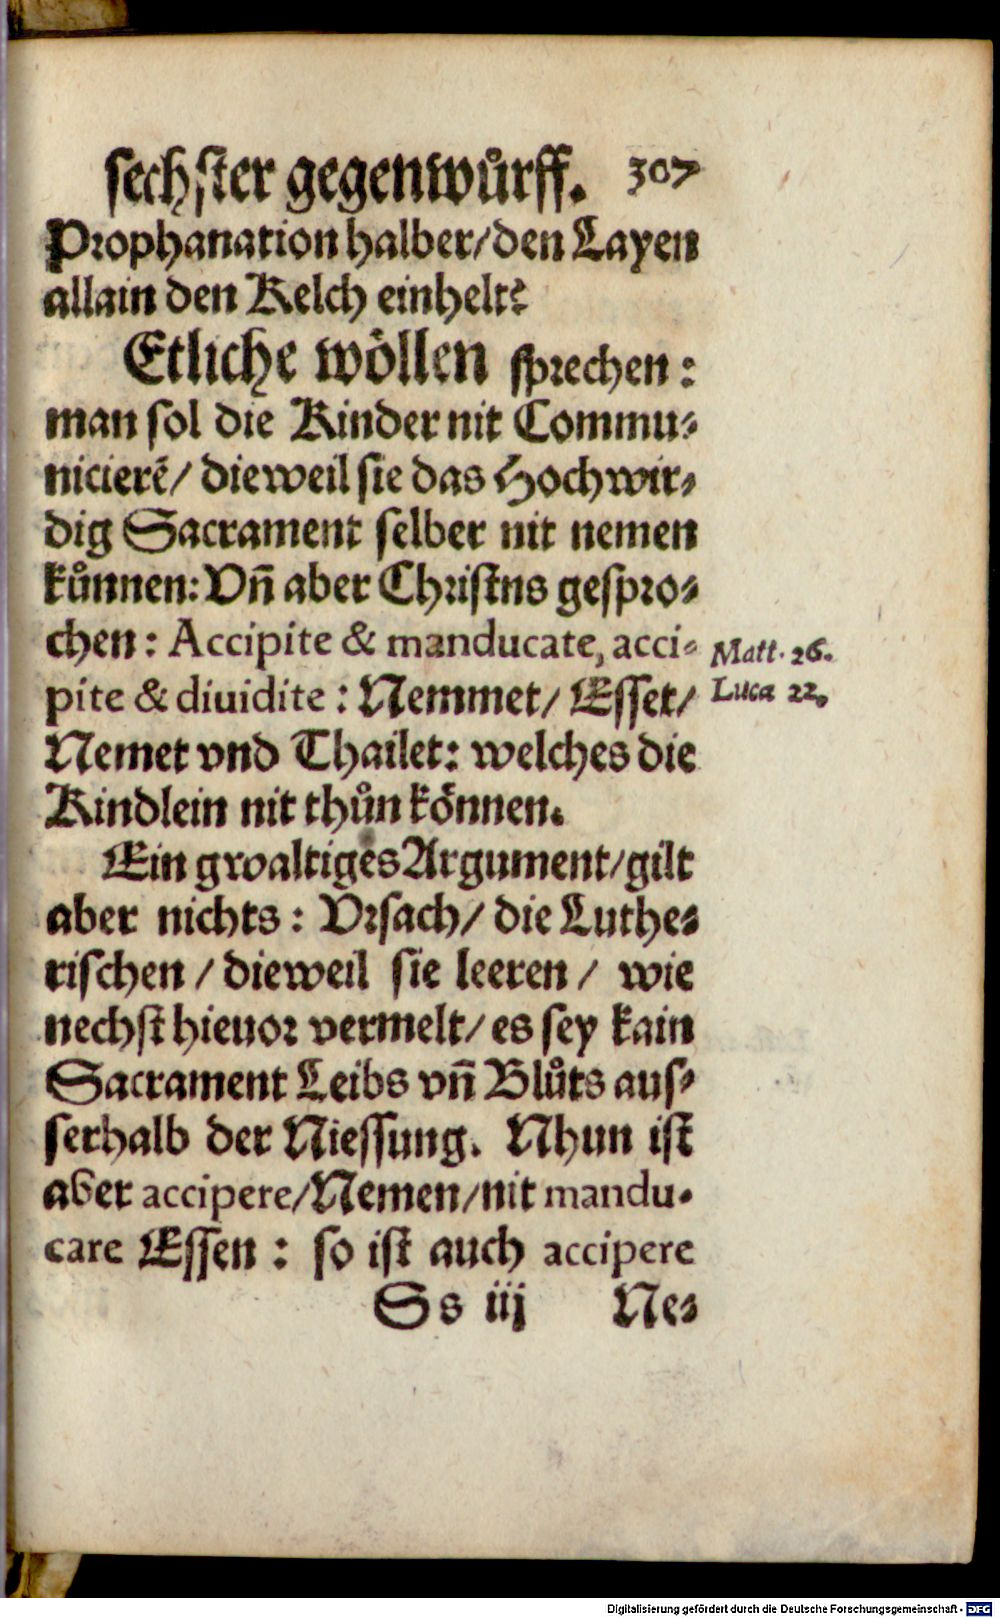 sechster gegenwůrff. 307
Prophanation halber/den Layen
allain den Kelch einhelt?
Etliche wöllen sprechen:
man sol die Kinder nit Commu-
nicierẽ/ dieweil sie das Hochwir-
dig Sacrament selber nit nemen
kůnnen: Vñ aber Christns gespro-
chen: Accipite & manducate, acci-
Matt. 26.
pite & diuidite: Nemmet/ Esset/
Luca 22.
Nemet vnd Thailet: welches die
Kindlein nit thůn können.
Ein gwaltiges Argument/gilt
aber nichts: Vrsach/ die Luthe-
rischen / dieweil sie leeren / wie
nechst hieuor vermelt/ es sey kain
Sacrament Leibs vñ Blůts aus-
serhalb der Niessung. Nhun ist
aber accipere/Nemen/nit mandu-
care Essen: so ist auch accipere
Ss iij Ne-
Digitalisierung gefördert durch die Deutsche Forschungsgemeinschaft - DFG